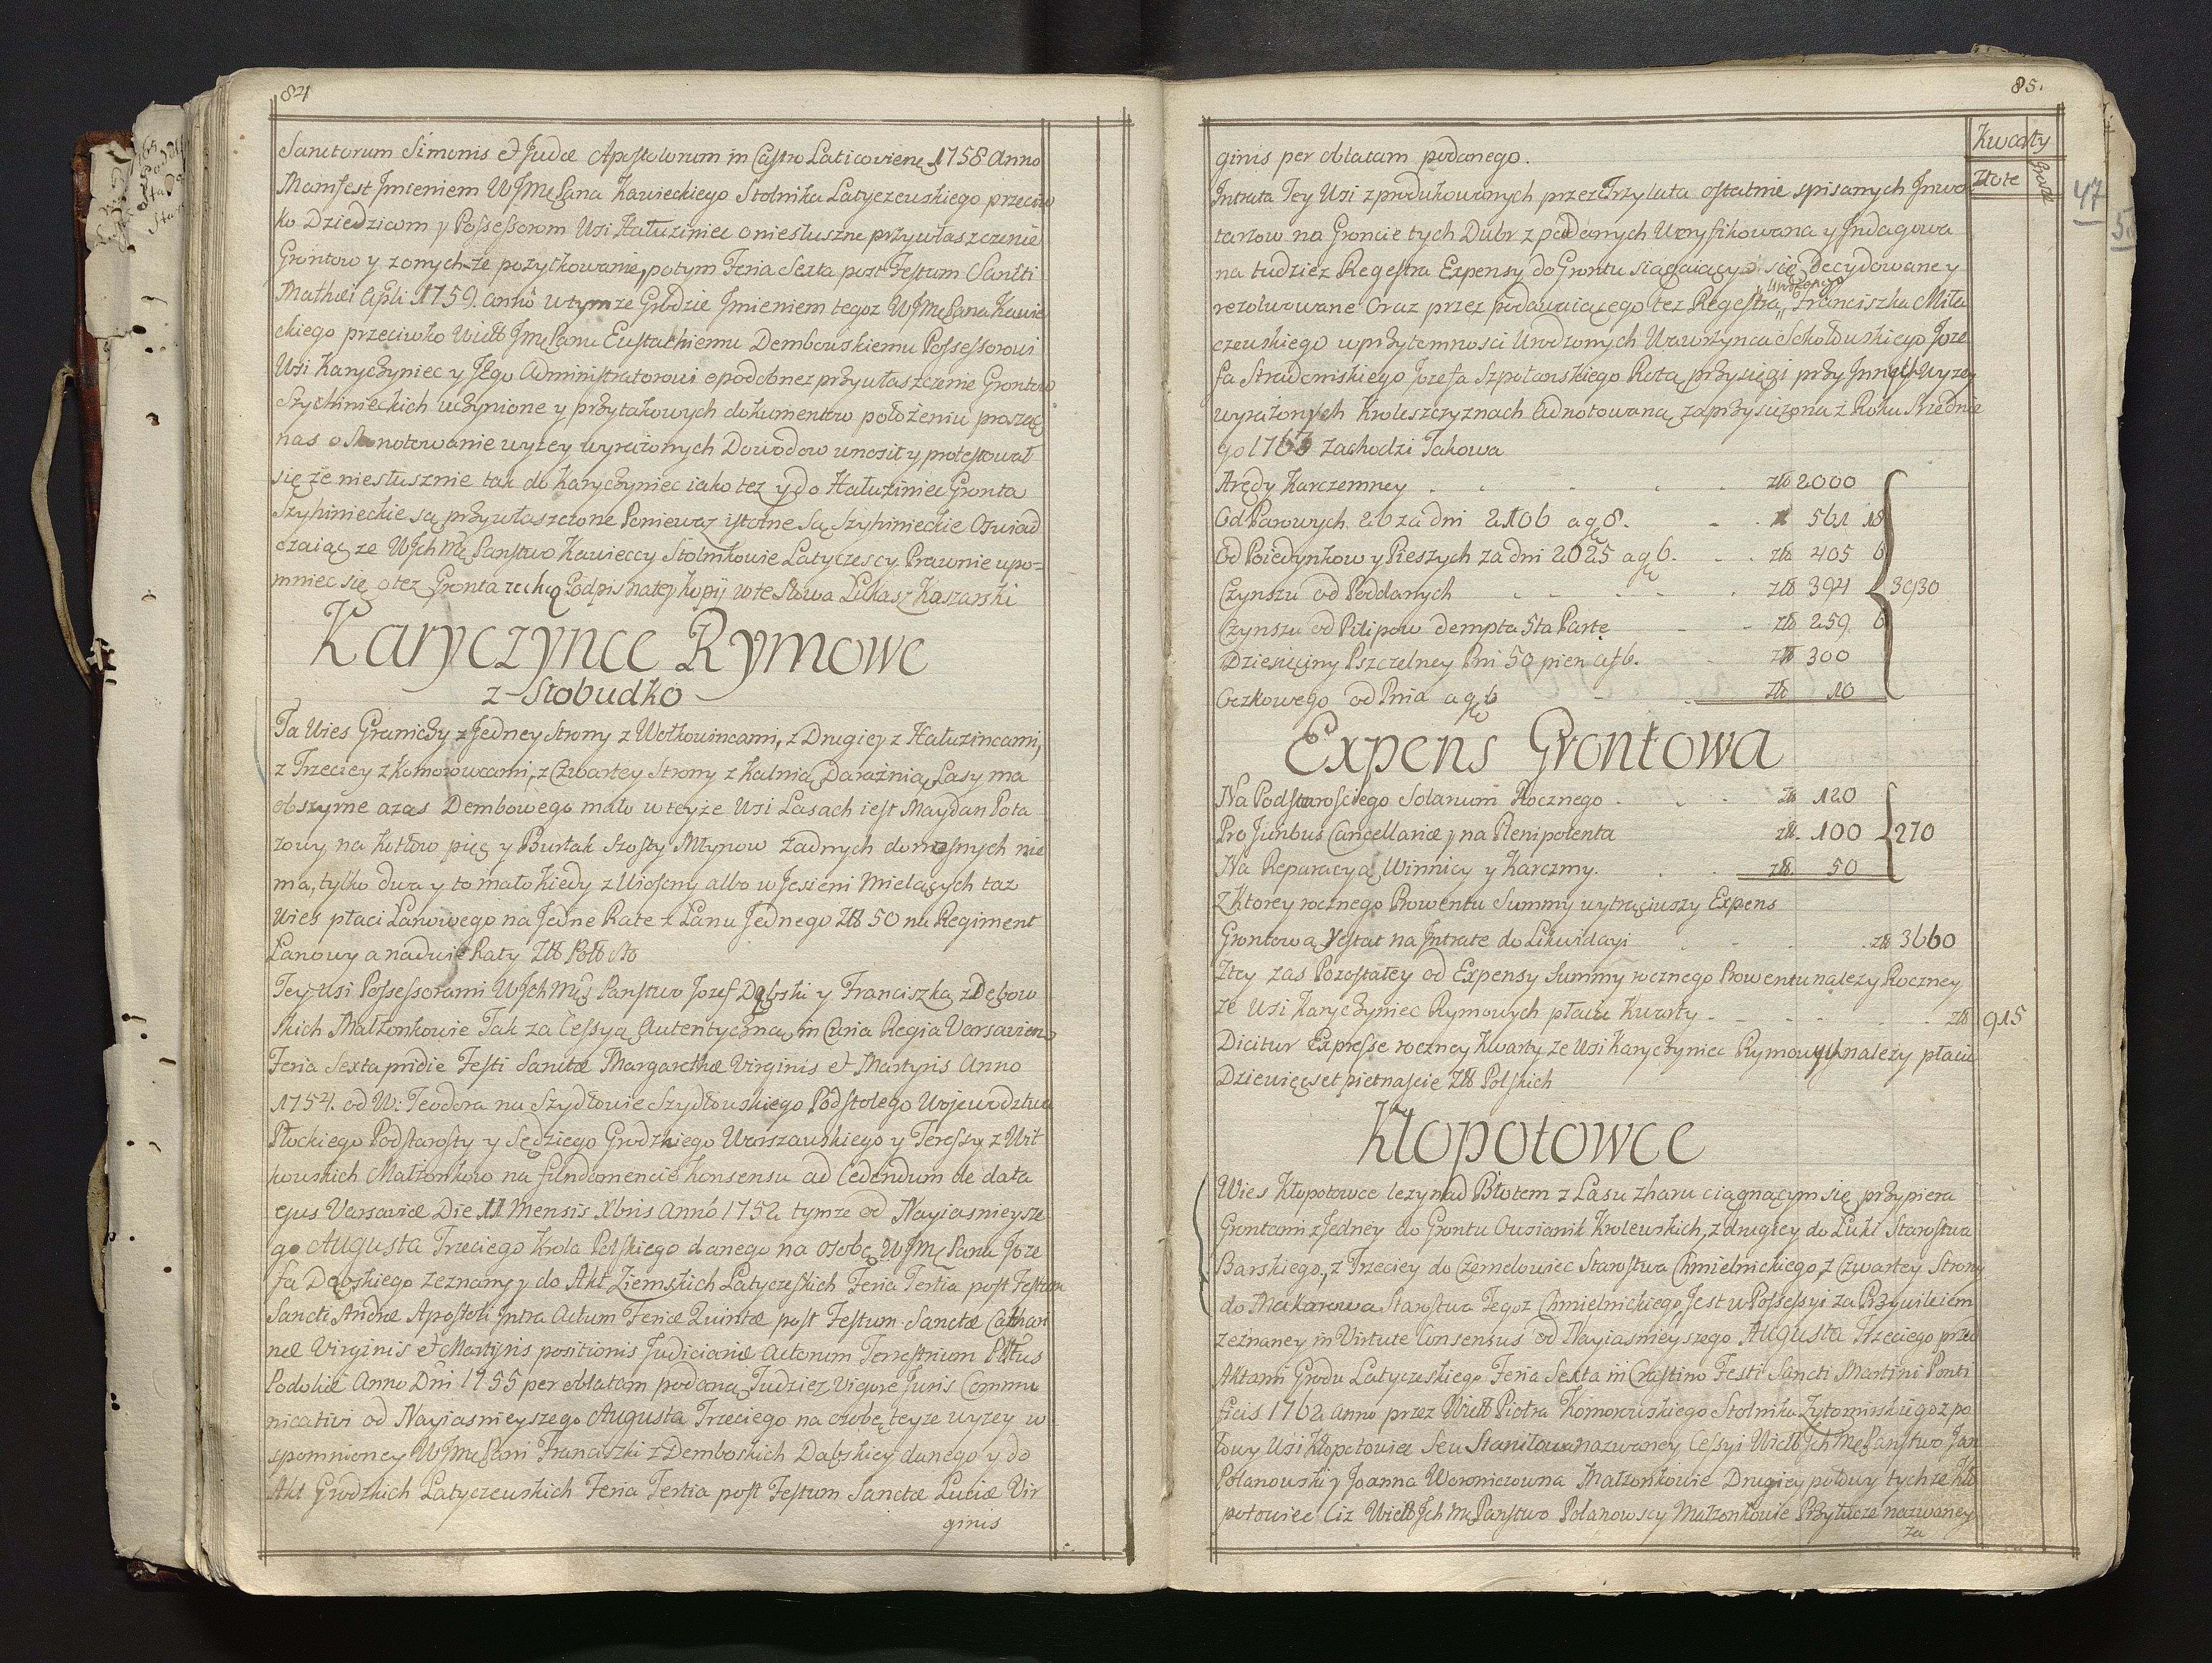 84
Sanctorum Simonis et Judæ Apostolorum in Castro Laticoviens 1758 Anno
Manifest Jmieniem WJMę Pana Kawieckiego Stolnika Latyczewskiego przeciw
ko Dziedzicom y Possessorom Wsi Hałuziniec o niesłuszne przywłaszczenie
Grontow y z onych że pożytkowanie, potym Feria Sexta post Festum Sancti
Mathæi Apli 1759. anno w tymze Grodzie Jmieniem tegoz WJMę Pana Kawie
ckiego przeciwko Wielb JMę Panu Eustachiemu Dembowskiemu Possessorowi
Wsi Karyczyniec y Jego Administratorowi o podobnez przywłaszczenie Grontow
Szychinieckich uczynione y przytakowych dokumentow położeniu prosząc
nas o Annotowanie wyzey wyrażonych Dowodow wnosił y protestował
się że niesłusznie tak do Karyczyniec iako tez y do Hałuziniec Gronta
Szyhinieckie są przywłaszczone Poniewaz istotne Są Szyhinieckie Oswiad
czaiąc ze WJch Mę Panstwo Kawieccy Stolnikowie Latyczescy Prawnie upo=
mniec się o tez Gronta zechcą Podpis na tey kopij w te słowa Łukasz Kaszarski
Karyczynce Rymowe
z Słobudko
Ta Wies Graniczy z Jedney Strony z Wołkowincami, z Drugiey z Hałuzincami,
z Trzeciey z Komorowcami, z Czwartey Strony z Kalnią Daraźnią Lasy ma
obszyrne azas Dembowego mało w teyże Wsi Lasach iest Maydan Pota
zowy na Kotłow pięc y Burłak Szosty Młynow żadnych donosnych nie
ma, tylko dwa y to mało kiedy z Wiosny albo w Jesieni Mielących taz
Wies płaci Łanowego na Jedne Rate z Łanu Jednego Złł 50 na Regiment
Łanowy a na dwie Raty Złł Polł sto
Tey Wsi Possessorami WJch Mę Panstwo Jozef Dąbski y Franciszka z Dębow
skich Małżonkowie Tak za Cessyą Autentyczną in Curia Regia Varsavien
Feria Sexta pridie Festi Sanctæ Margarethæ Virginis et Martyris Anno
1754. od W: Teodora na Szydłowie Szydłowskiego Podstolego Wojewodztwa
Płockiego Podstarosty y Sędziego Grodzkiego Warszawskiego y Teressy z Wit
kowskich Małżonkow na fundamencie Konsensu ad Cedendum de data
ejus Varsaviæ Die 11 Mensis Xbris Anno 1752 tymze od Nayiasnieysze
go Augusta Trzeciego Krola Polskiego danego na osobę WJMę Pana Joze
fa Dąbskiego zeznaną y do Akt Ziemskich Latyczeskich Feria Tertia post Festum
Sancti Andreæ Apostoli Intra Actum Feriæ Quintæ post Festum Sanctæ Cathari
næ Virginis et Martyris positionis Judiciariæ Actorum Terrestrium Płłtus
Podoliæ Anno Dni 1755 per oblatam podaną Tudziez Vigore Juris Commu
nicativi od Nayiasnieyszego Augusta Trzeciego na osobę teyze wyzey w
spomnioney WJMę Pani Franciszki z Demboskich Dąbskiey danego y do
Akt Grodzkich Latyczewskich Feria Tertia post Festum Sanctæ Luciæ Vir
ginis
85.
Kwarty
Złote Grosze
47
ginis per oblatam podanego.
Intrata Tey Wsi z produkowanych przez Trzy lata ostatnie spisanych Jnwen
tarzow na Groncie tych Dubr z poddanych Weryfikowana y Jndagowa
na tudziez Regestra Expensy do Grontu sciągaiącyc się Decydowane y
rezolwowane Oraz przez podawaiącego tez Regestra Urodzonego Franciszka Miła
czewskiego w przytomnosci Urodzonych Wawrzynca Sokołowskiego Joze
fa Stradomskiego Jozefa Szpołanskiego Rota przysięgi przy Jnnych wyzey
wyrażonych Kroleszczyznach Adnotowaną zaprzysięzona z Roku Srzednie
go 1763 zachodzi Takowa
Arędy Karczemney . . . . . złł 2000
Od Parowych 26 za dni 2106 a gr 8. . . zł 561 18
Od Poiedynkow y Pieszych za dni 2025 a gr 6. . . złł 405
Czynszu od Poddanych . . . . złł 394 3930
Czynszu od Pilipow dempta 5ta Parte złł 259. 6
Dziesięciny Pszczelney Pni 50 pien a zł 6. złł 300
Oczkowego od Pnia a gr 6 złł 10
Expens Grontowa
Na Podstarosciego Solarium Rocznego . . . zł 120
Pro Juribus Cancellariæ y na Plenipotenta zł. 100 270
Na Reparacyą Winnicy y Karczmy. . . zł. 50
Z Ktorey rocznego Prowentu Summy wytrąciwszy Expens
Grontową restat na Jntrate do Likwidacyi . . . zł 3660
Ztey zas Pozostałey od Expensy Summy rocznego Prowentu nalezy Roczney
ze Wsi Karyczyniec Rymowych płacic Kwarty . . . . zł 915
Dicitur Expresse roczney Kwarty ze Wsi Karyczyniec Rymowych nalezy płacic
Dziewięcset pietnascie Złł Polskich
Kłopotowce
Wies Kłopotowce lezy nad Błotem z Lasu zharu ciągnącym się przypiera
Grontami z Jedney do Grontu Owsianik Krolewskich, z drugiey do Łuki Starostwa
Barskiego, z Trzeciey do Czemelowiec Starostwa Chmielnickiego, z Czwartey Strony
do Makarowa Starostwa Tegoz Chmielnickiego Jest w Possessyi za Przywileiem
zeznaney in Virtute Consensus od Nayiasnieyszego Augusta Trzeciego przed
Aktami Grodu Latyczeskiego Feria Sexta in Crastino Festi Sancti Martini Ponti
ficis 1762 anno przez Wielb Piotra Komorowskiego Stolnika Zytomirskiego z po
łowy Wsi Kłopotowiec Seu Staniława nazwaney Cessyi Wielb Jch Mę Panstwo Jan
Polanowski y Joanna Woroniczowna Małżonkowie Drugiey połowy tychze Kło
potowiec Ciz Wielb Jch Mę Panstwo Polanowscy Małżonkowie Przyłucze nazwaney
za